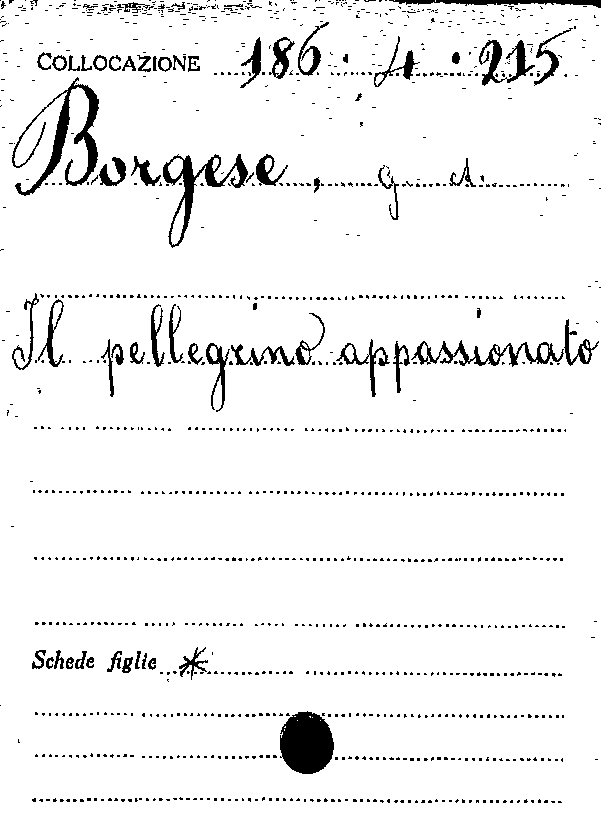 COLLOCAZIONE 186 · 4 · 215
Borgese, G. A.
Il pellegrino appassionato
Schede figlie *